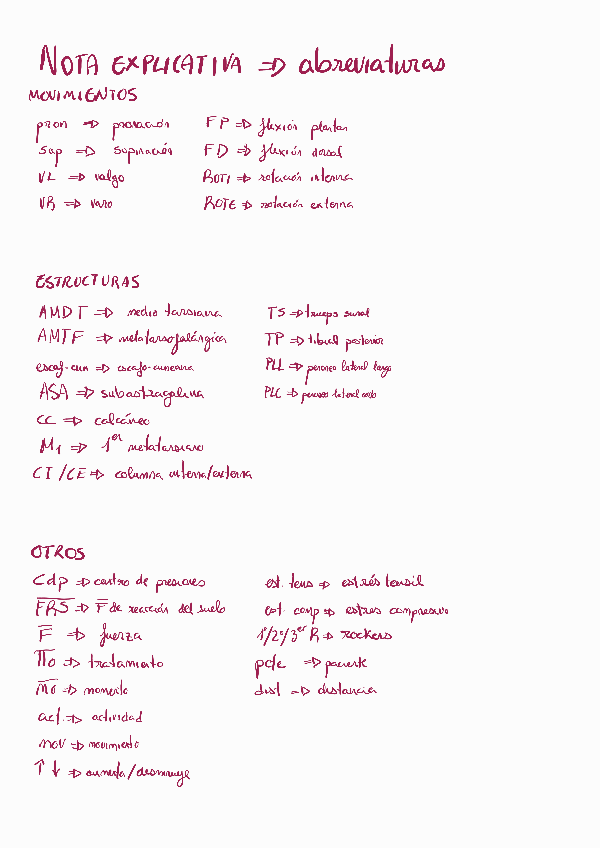 NOTA EXPLICATIVA ⇒ abreviaturas
MOVIMIENTOS
pron ⇒ pronación
sup ⇒ supinación
VL ⇒ valgo
VR ⇒ varo
FP ⇒ flexión plantar
FD ⇒ flexión dorsal
ROTI ⇒ rotación interna
ROTE ⇒ rotación externa
ESTRUCTURAS
AMDT ⇒ medio tarsiana
AMTF ⇒ metatarsofalángica
escaf-cun ⇒ escafo-cuneana
ASA ⇒ subastragalina
CC ⇒ calcáneo
M1 ⇒ 1er metatarsiano
CI/CE ⇒ columna interna/externa
TS ⇒ triceps sural
TP ⇒ tibial posterior
PLL ⇒ peroneo lateral largo
PLC ⇒ peroneo lateral corto
OTROS
Cdp ⇒ centro de presiones
FRS ⇒ F de reacción del suelo
F ⇒ fuerza
TTo ⇒ tratamiento
mo ⇒ momento
act. ⇒ actividad
mov ⇒ movimiento
↑ ↓ ⇒ aumenta/disminuye
est. tens ⇒ estrés tensil
est. comp ⇒ estres compresivo
1º/2º/3er R ⇒ rockers
pcte ⇒ paciente
dist ⇒ distancia